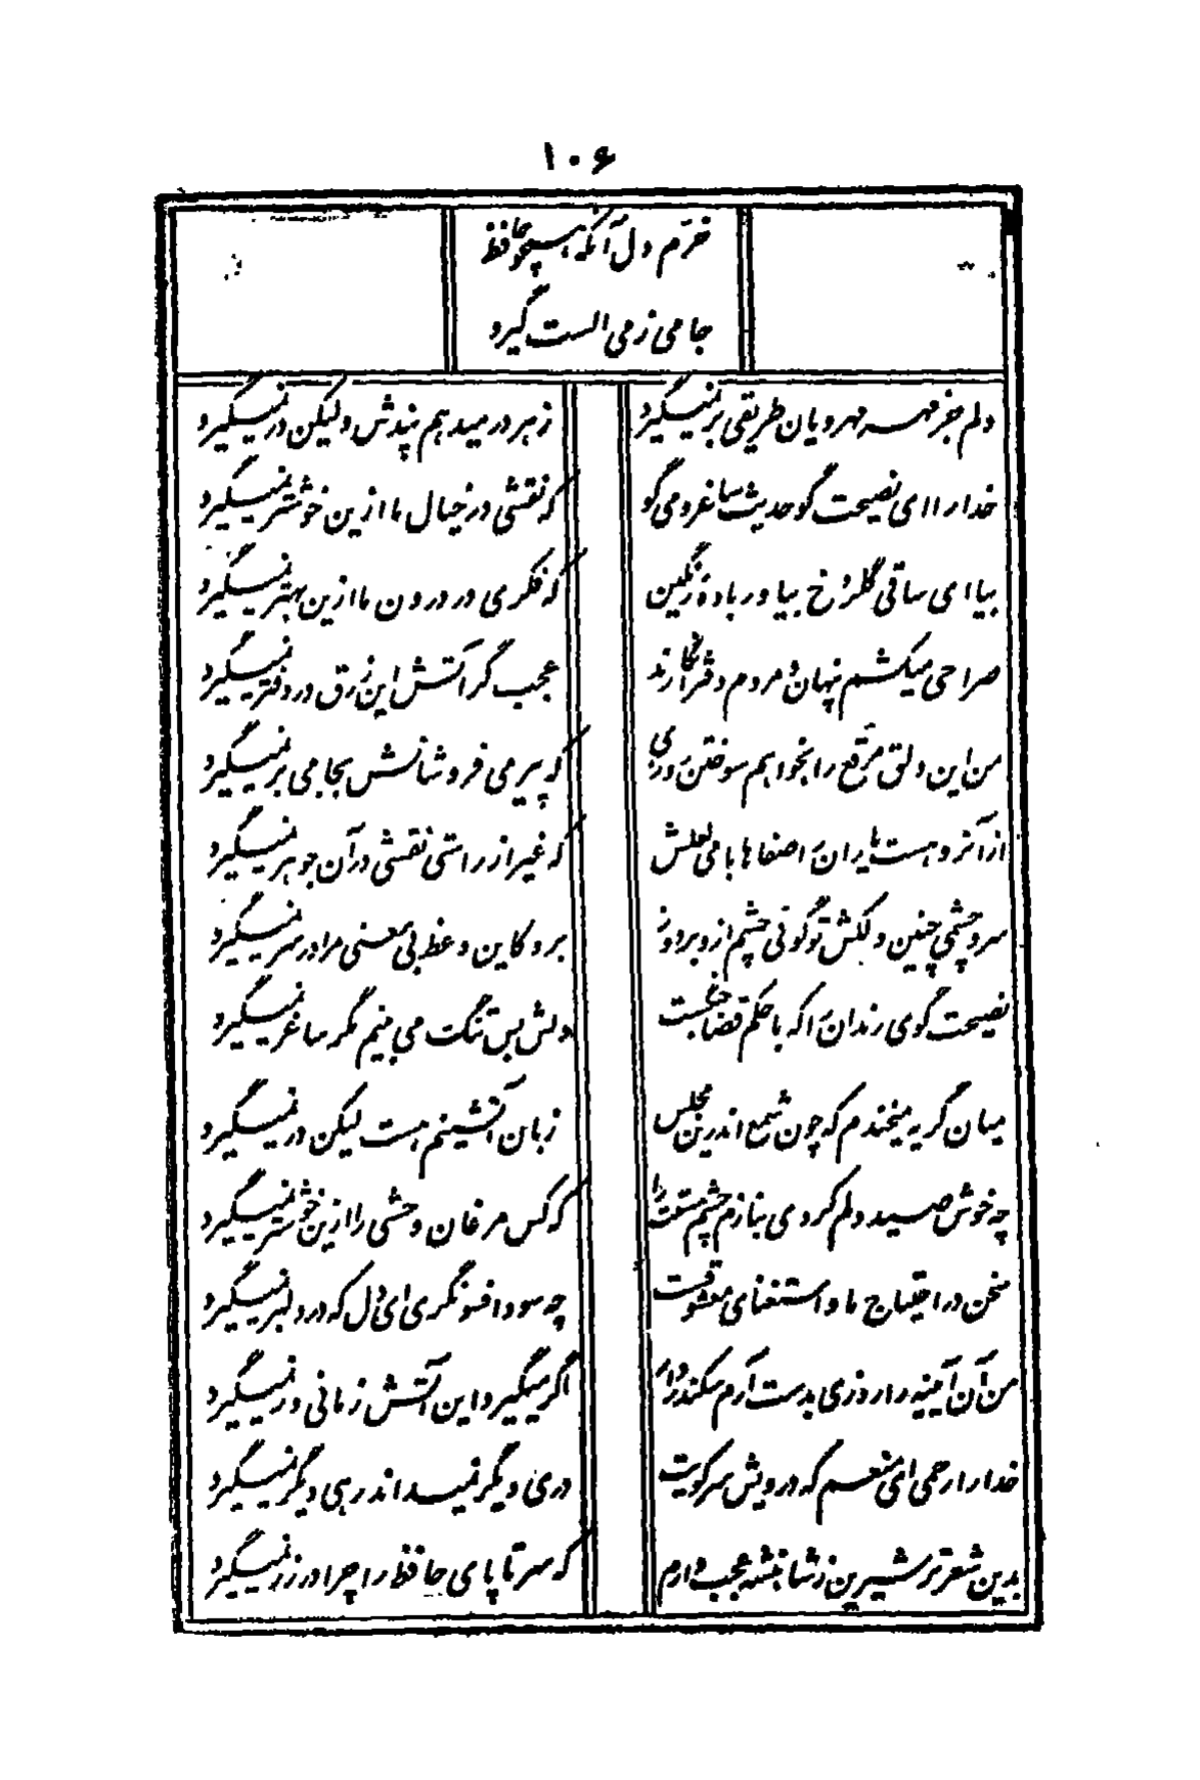 ۱۰۶
خرّم دل آنکه همچو حافظ
جامی ز می الست گیرد
دلم جز مهر مهرویان طریقی بر نمیگیرد
ز هر در میدهم پندش ولیکن در نمیگیرد
خدا را ای نصیحت گو حدیث ساغر و می گو
که نقشی در خیال ما ازین خوشتر نمیگیرد
بیا ای ساقی گلرخ بیاور بادهٔ رنگین
که فکری در درون ما ازین بهتر نمیگیرد
صراحی میکشم پنهان و مردم دفتر انگارند
عجب گر آتش این زرق در دفتر نمیگیرد
من این دلق مرقّع را بخواهم سوختن روزی
که پیر می فروشانش بجامی بر نمیگیرد
از آنرو هست یاران را صفاها با می لعلش
که غیر از راستی نقشی در آن جوهر نمیگیرد
سر و چشمی چنین دلکش تو گوئی چشم ازو بردوز
برو کاین وعظ بی معنی مرا در سر نمیگیرد
نصیحت گوی رندان را که با حکم قضا جنگست
دلش بس تنگ می بینم مگر ساغر نمیگیرد
میان گریه میخندم که چون شمع اندرین مجلس
زبان آتشینم هست لیکن در نمیگیرد
چه خوش صید دلم کردی بنازم چشم مستت را
که کس مرغان وحشی را ازین خوشتر نمیگیرد
سخن در احتیاج ما و استغنای معشوقست
چه سود افسونگری ای دل که در دلبر نمیگیرد
من آن آیینه را روزی بدست آرم سکندر وار
اگر میگیرد این آتش زمانی ور نمیگیرد
خدا را رحمی ای منعم که درویش سر کویت
دری دیگر نمیداند رهی دیگر نمیگیرد
بدین شعر تر شیرین ز شاهنشه عجب دارم
که سر تا پای حافظ را چرا در زر نمیگیرد